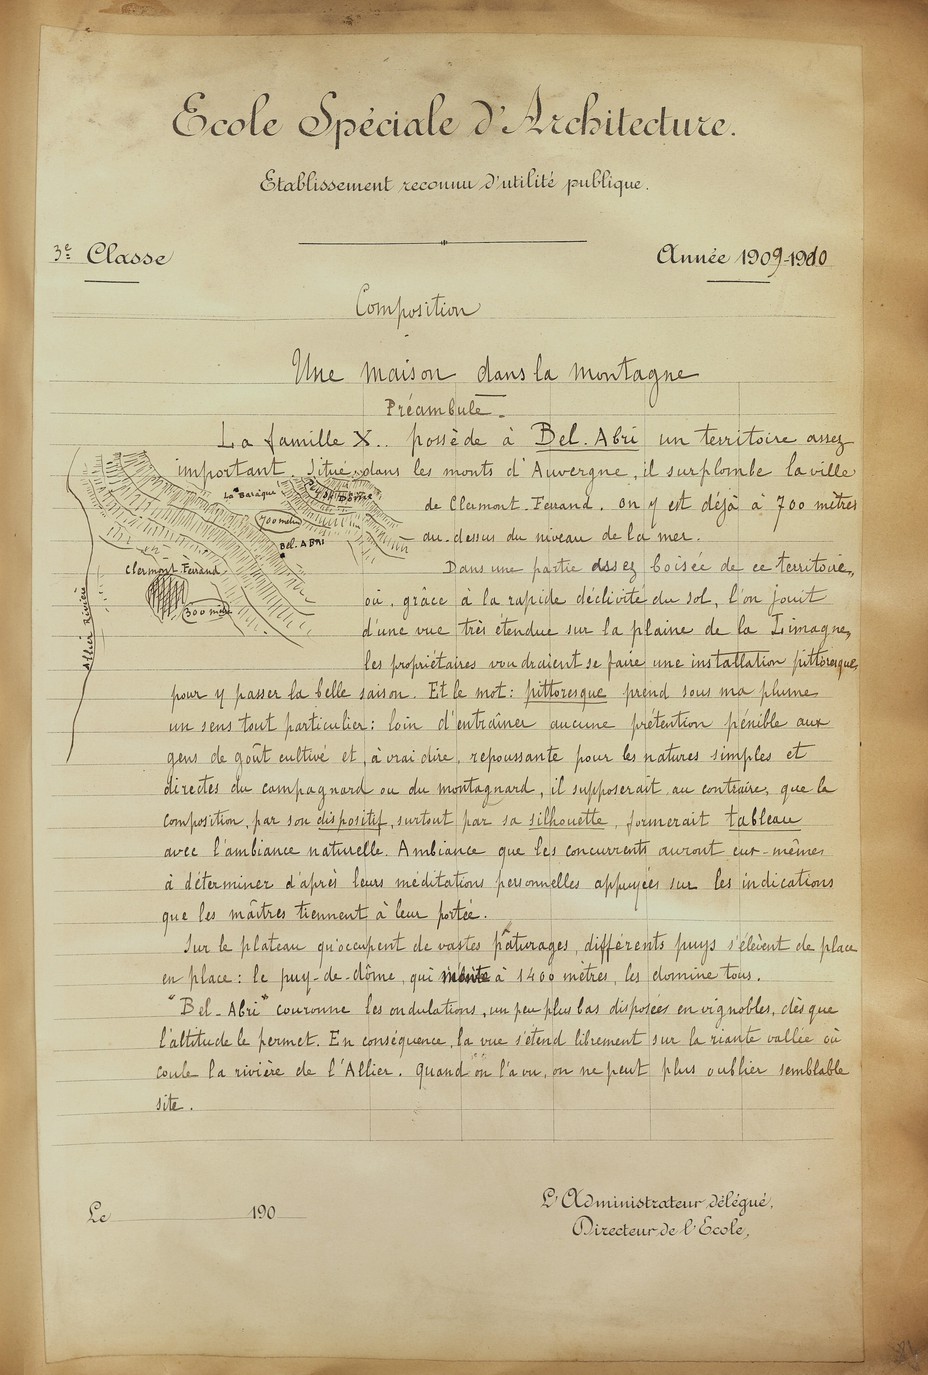 Ecole Spéciale d'Architecture.
Etablissement reconnu d'utilité publique.
3e Classe
Année 1909-1910
Composition
Une maison dans la montagne
Préambule.
La famille X.. possède à Bel. Abri un territoire assez
important. Situé dans les monts d'Auvergne, il surplombe la ville
de Clermont-Ferrand. on y est déjà à 700 mètres
au-dessus du niveau de la mer.
Dans une partie assez boisée de ce territoire,
où, grâce à la rapide déclivité du sol, l'on jouit
d'une vue très étendue sur la plaine de la Limagne,
les propriétaires voudraient se faire une installation pittoresque,
pour y passer la belle saison. Et le mot: pittoresque prend sous ma plume
un sens tout particulier: loin d'entraîner aucune prétention pénible aux
gens de goût cultivé et, à vrai dire, repoussante pour les natures simples et
directes du campagnard ou du montagnard, il supposerait au contraire, que la
composition, par son dispositif, surtout par sa silhouette, formerait tableau
avec l'ambiance naturelle. Ambiance que les concurrents auront eux-mêmes
à déterminer d'après leurs méditations personnelles appuyées sur les indications
que les maîtres tiennent à leur portée.
Sur le plateau qu'occupent de vastes pâturages, différents puys s'élèvent de place
en place: le puy-de-dôme, qui monte à 1400 mètres, les domine tous.
"Bel-Abri" couronne les ondulations, un peu plus bas disposées en vignobles, dès que
l'altitude le permet. En conséquence, la vue s'étend librement sur la riante vallée où
coule la rivière de l'Allier. Quand on l'a vu, on ne peut plus oublier semblable
site.
La Baraque
Puy de Dôme
700 mètres
Bel. Abri
Clermont-Ferrand
300 m
Allier Rivière
Le 190
L'Administrateur délégué,
Directeur de l'Ecole,